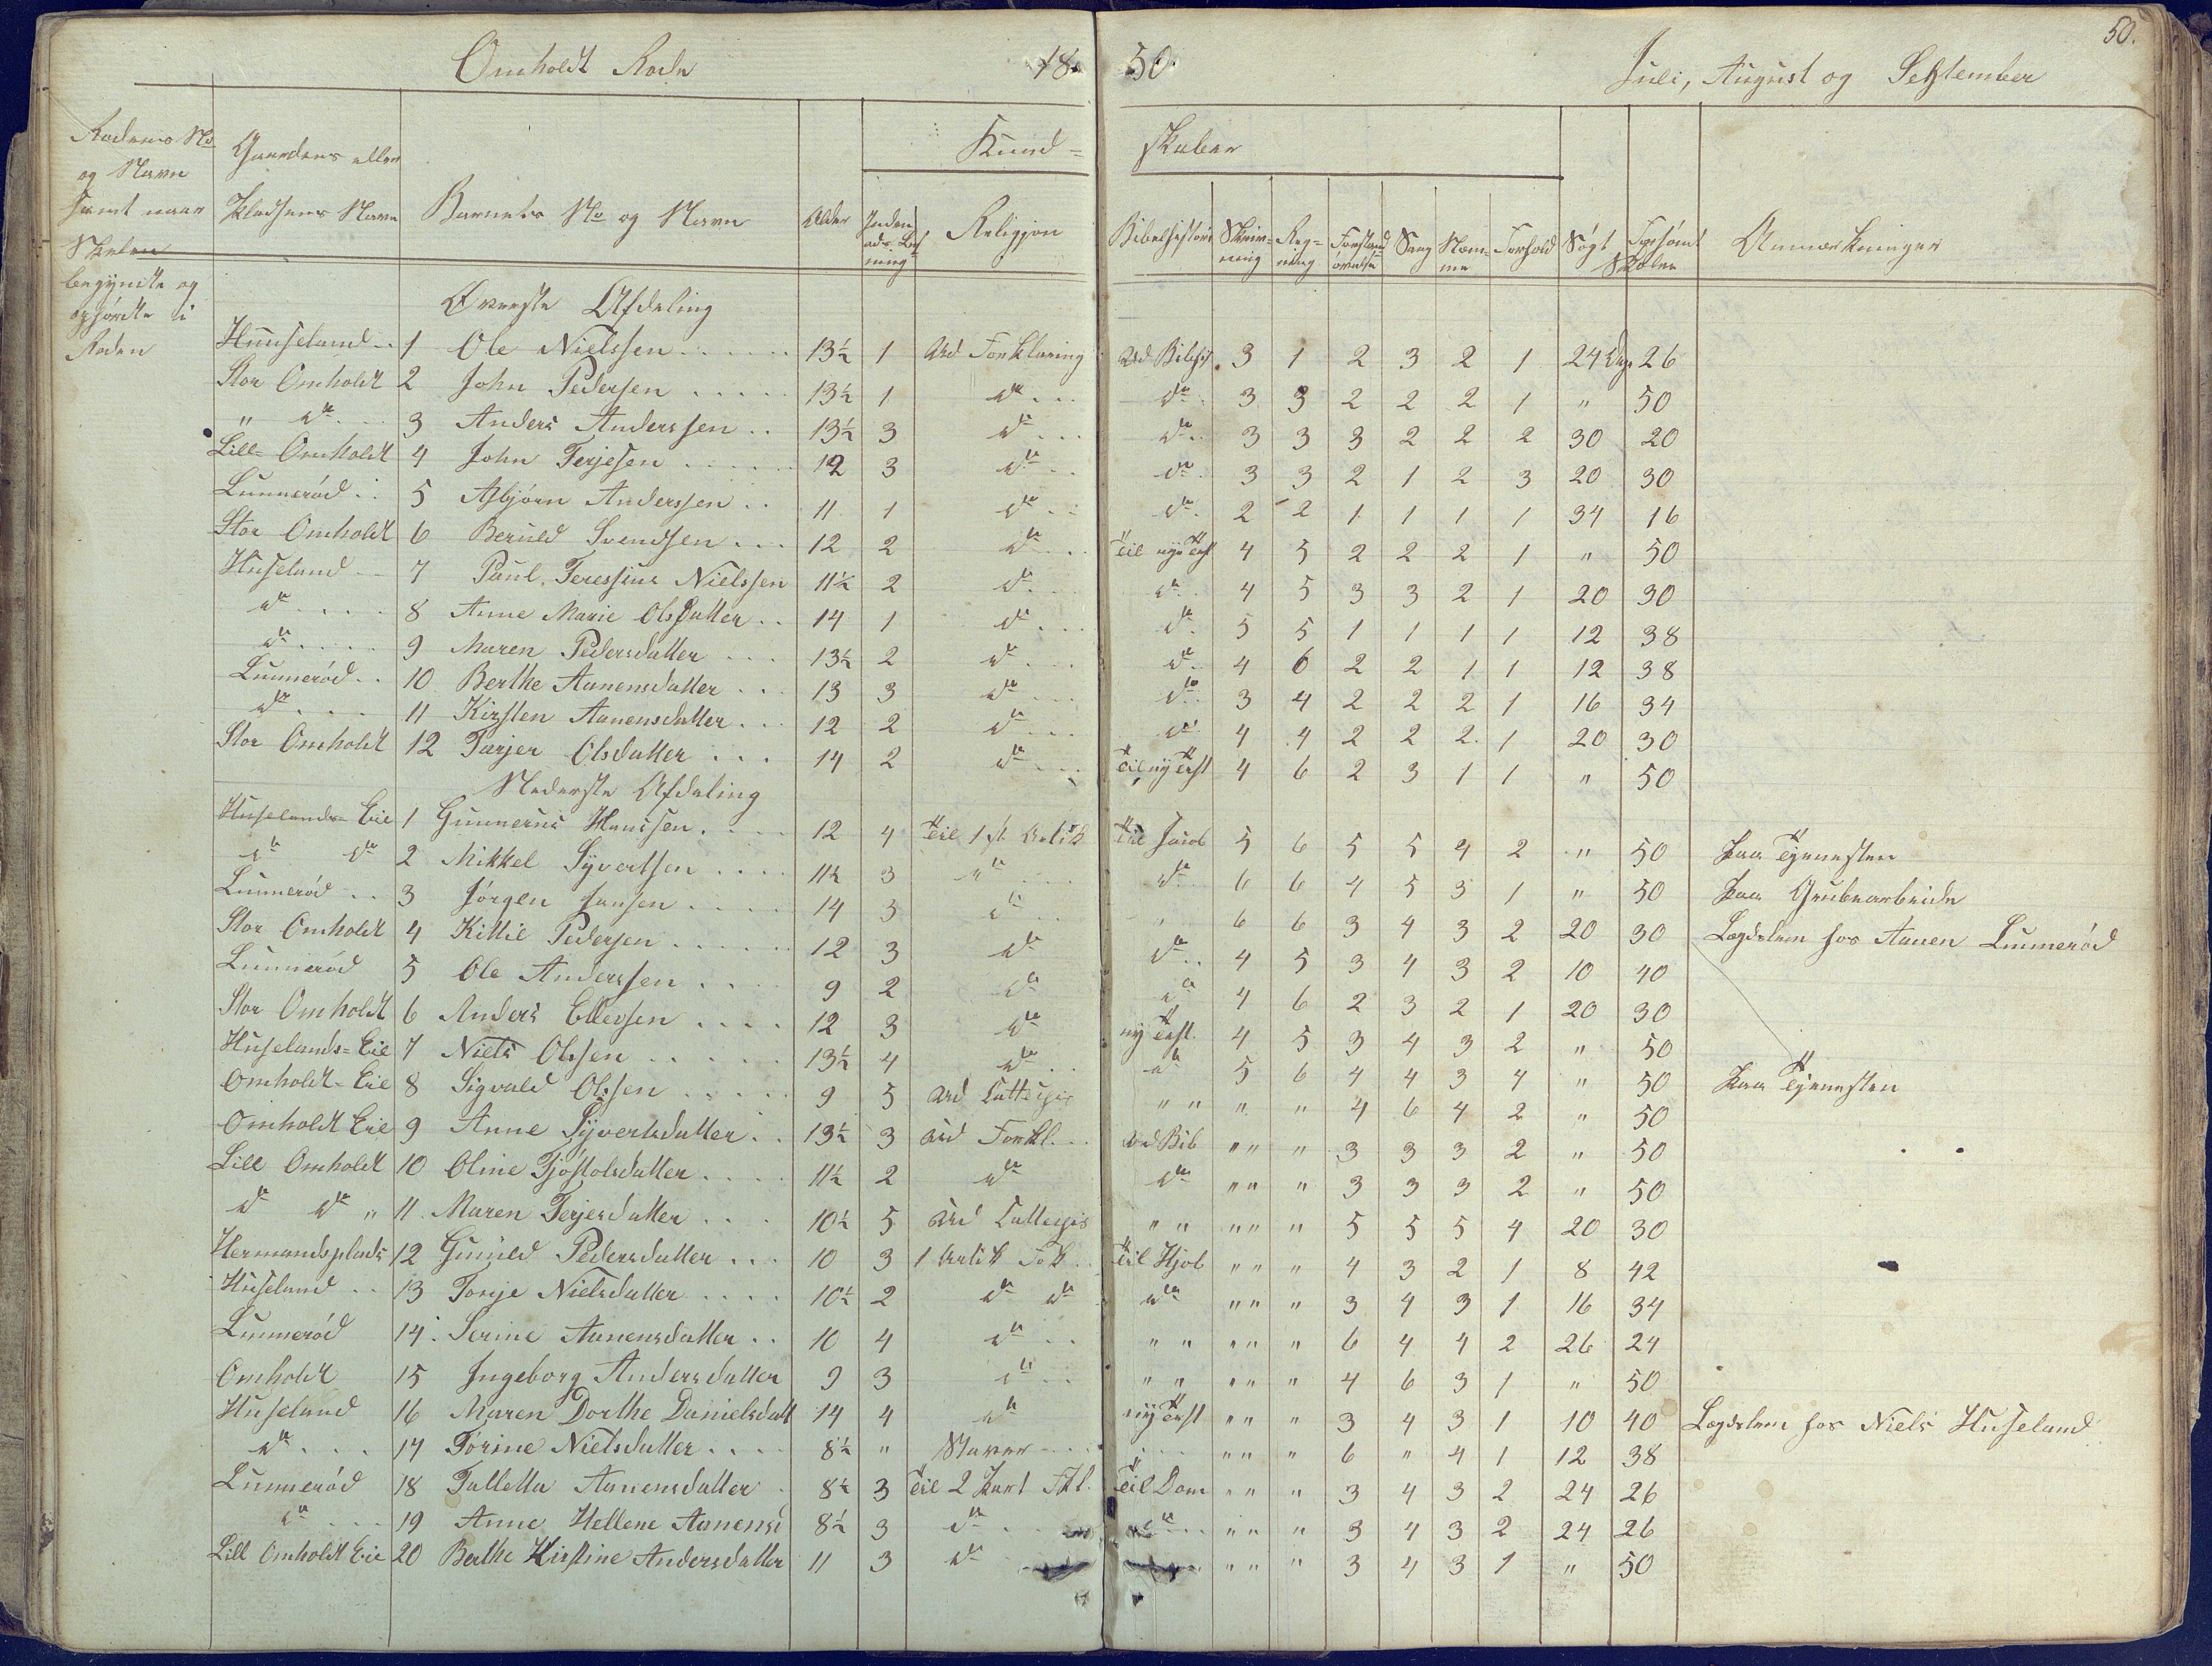 50.
Omholdt Rode 1850. Juli, August og September
Rodens No og Navn samt naar Skolen begyndte og ophørte i Roden
Gaardens eller Pladsens Navn
Barnets No og Navn
Alder
Religjon
Kundskaber
Bibelhistori
Skrivning
Regning
Forstandsøvelse
Sang
Nemme
Forhold
Søgt
Forsømt
Skolen
Anmærkninger
Øverste Afdeling
Huuseland 1 Ole Nielssen 13½ 1 Ud Forklaring Ud Bibhist. 3 1 2 3 2 1 24 Dage 26
Stor Omholdt 2 John Pedersen 13½ 1 do do 3 3 2 2 2 1 " 50
" do 3 Anders Anderssen 13½ 3 do do 3 3 3 2 2 2 30 20
Lill= Omholdt 4 John Terjesen 12 3 do do 3 3 2 1 2 3 20 30
Lunnerød 5 Asbjørn Anderssen 11 1 do do 2 2 1 1 1 1 34 16
Stor Omholdt 6 Beruld Svendsen 12 2 do Til nye Test 4 5 2 2 2 1 " 50
Huseland 7 Paul Teressius Nielssen 11½ 2 do do 4 5 3 3 2 1 20 30
do 8 Anne Marie Olsdatter 14 1 do do 5 5 1 1 1 1 12 38
do 9 Maren Pedersdatter 13½ 2 do do 4 6 2 2 1 1 12 38
Lunnerød 10 Berthe Aanensdatter 13 3 do do 3 4 2 2 2 1 16 34
do 11 Kirsten Aanensdatter 12 2 do do 4 4 2 2 2 1 20 30
Stor Omholdt 12 Tarjer Olsdatter 14 2 do Til ny Test 4 6 2 3 1 1 " 50
Nederste Afdeling
Huselands=Eie 1 Gunnerus Hanssen 12 4 Til 1ste Artik Til Jacob 5 6 5 5 4 2 " 50 Paa Tjenesten
do do 2 Mikkel Syvertsen 11½ 3 do do 6 6 4 5 3 1 " 50 Paa Grubearbeide
Lunnerød 3 Jørgen Jansen 14 3 do " 6 6 3 4 3 2 20 30 Lægdslem hos Aanen Lunnerød
Stor Omholdt 4 Kittil Pedersen 12 3 do do 4 5 3 4 3 2 10 40
Lunnerød 5 Ole Anderssen 9 2 do do 4 6 2 3 2 1 20 30
Stor Omholdt 6 Anders Ellevsen 12 3 do ny Test 4 5 3 4 3 2 " 50
Huselands=Eie 7 Niels Olssen 13½ 4 do do 5 6 4 4 3 4 " 50 Paa Tjenesten
Omholdt=Eie 8 Sigvald Olssen 9 5 Ud Luttegis " " " " 4 6 4 2 " 50
Omholdt Eie 9 Anne Syvertsdatter 13½ 3 Ud Forkl. Ud Bib " " " 3 3 3 2 " 50
Lill Omholdt 10 Oline Tjøstolsdatter 11½ 2 do do " " " 3 3 3 2 " 50
do do " 11 Maren Terjesdatter 10½ 5 Ud Luttegis " " " " " 5 5 5 4 20 30
Hermandsplads 12 Gunild Pedersdatter 10 3 1 Artik Fok Til Hjob " " " 4 3 2 1 8 42
Huseland 13 Tonje Nielsdatter 10½ 2 do do do " " " 3 4 3 1 16 34
Lunnerød 14. Serine Aanensdatter 10 4 do " " " " " 6 4 4 2 26 24
Omholdt 15 Ingeborg Andersdatter 9 3 do " " " " " 4 6 3 1 " 50
Huseland 16 Maren Dorthe Danielsdatt 14 4 do ny Test " " " 3 4 3 1 10 40 Lægdslem hos Niels Huseland
do 17 Torine Nielsdatter 8½ " Staver " " " 6 " 4 1 12 38
Lunnerød 18 Talletta Aanensdatter 8½ 3 Til 2 Part Fkl. Til Dom " " " 3 4 3 2 24 26
do 19 Anne Hellene Aanensd 8½ 3 do do " " " 3 4 3 2 24 26
Lill Omholdt Eie 20 Berthe Kirstine Andersdatter 11 3 do " " " 3 4 3 1 " 50